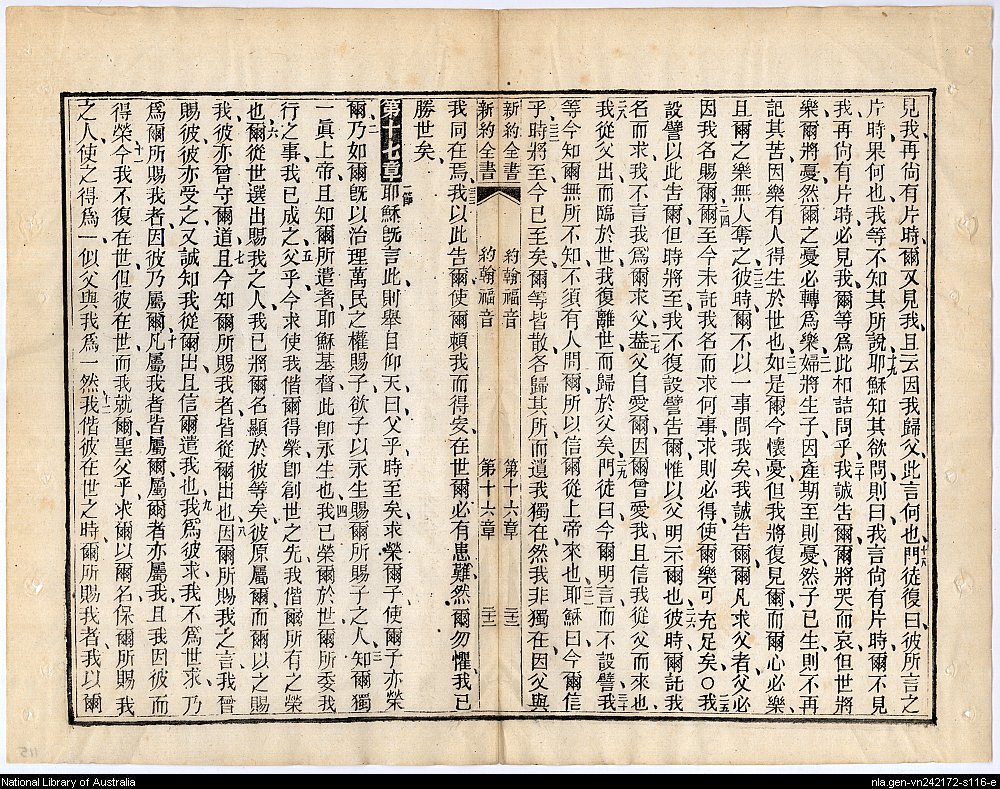 見我再尙有片時爾又見我且云因我歸父此言何也十八門徒復曰彼所言之
片時果何也我等不知其所說十九耶穌知其欲問則曰我言尙有片時爾不見
我再尙有片時必見我爾等爲此相詰問乎二十我誠告爾爾將哭而哀但世將
樂爾將憂然爾之憂必轉爲樂二一婦將生子因產期至則憂然子已生則不再
記其苦因樂有人得生於世也二二如是爾今懷憂但我將復見爾而爾心必樂
且爾之樂無人奪之二三彼時爾不以一事問我矣我誠告爾爾凡求父者父必
因我名賜爾二四爾至今未託我名而求何事求則必得使爾樂可充足矣〇二五我
設譬以此告爾但時將至我不復設譬告爾惟以父明示爾也二六彼時爾託我
名而求我不言我爲爾求父二七蓋父自愛爾因爾曾愛我且信我從父而來也
二八我從父出而臨於世我復離世而歸於父矣二九門徒曰今爾明言而不設譬三十我
等今知爾無所不知不須有人問爾所以信爾從上帝來也三一耶穌曰今爾信
乎三二時將至今已至矣爾等皆散各歸其所而遺我獨在然我非獨在因父與
新約全書 約翰福音 第十六章 二三
新約全書 約翰福音 第十六章 二三
我同在焉三三我以此告爾使爾賴我而得安在世爾必有患難然爾勿懼我已
勝世矣
第十七章一節耶穌旣言此則舉目仰天曰父乎時至矣求榮爾子使爾子亦榮
爾二乃如爾旣以治理萬民之權賜子欲子以永生賜爾所賜子之人三知爾獨
一眞上帝且知爾所遣者耶穌基督此卽永生也四我已榮爾於世爾所委我
行之事我已成之五父乎今求使我偕爾得榮卽創世之先我偕爾所有之榮
也六爾從世選出賜我之人我已將爾名顯於彼等矣彼原屬爾而爾以之賜
我彼亦曾守爾道七且今知爾所賜我者皆從爾出也八因爾所賜我之言我曾
賜彼彼亦受之又誠知我從爾出且信爾遣我也九我爲彼求我不爲世求乃
爲爾所賜我者因彼乃屬爾十凡屬我者皆屬爾屬爾者亦屬我且我因彼而
得榮十一今我不復在世但彼在世而我就爾聖父乎求爾以爾名保爾所賜我
之人使世之得爲一似父與我爲一然十二我偕彼在世之時爾所賜我者我以爾
National Library of Australia
nla.gen-vn242172-s116-e